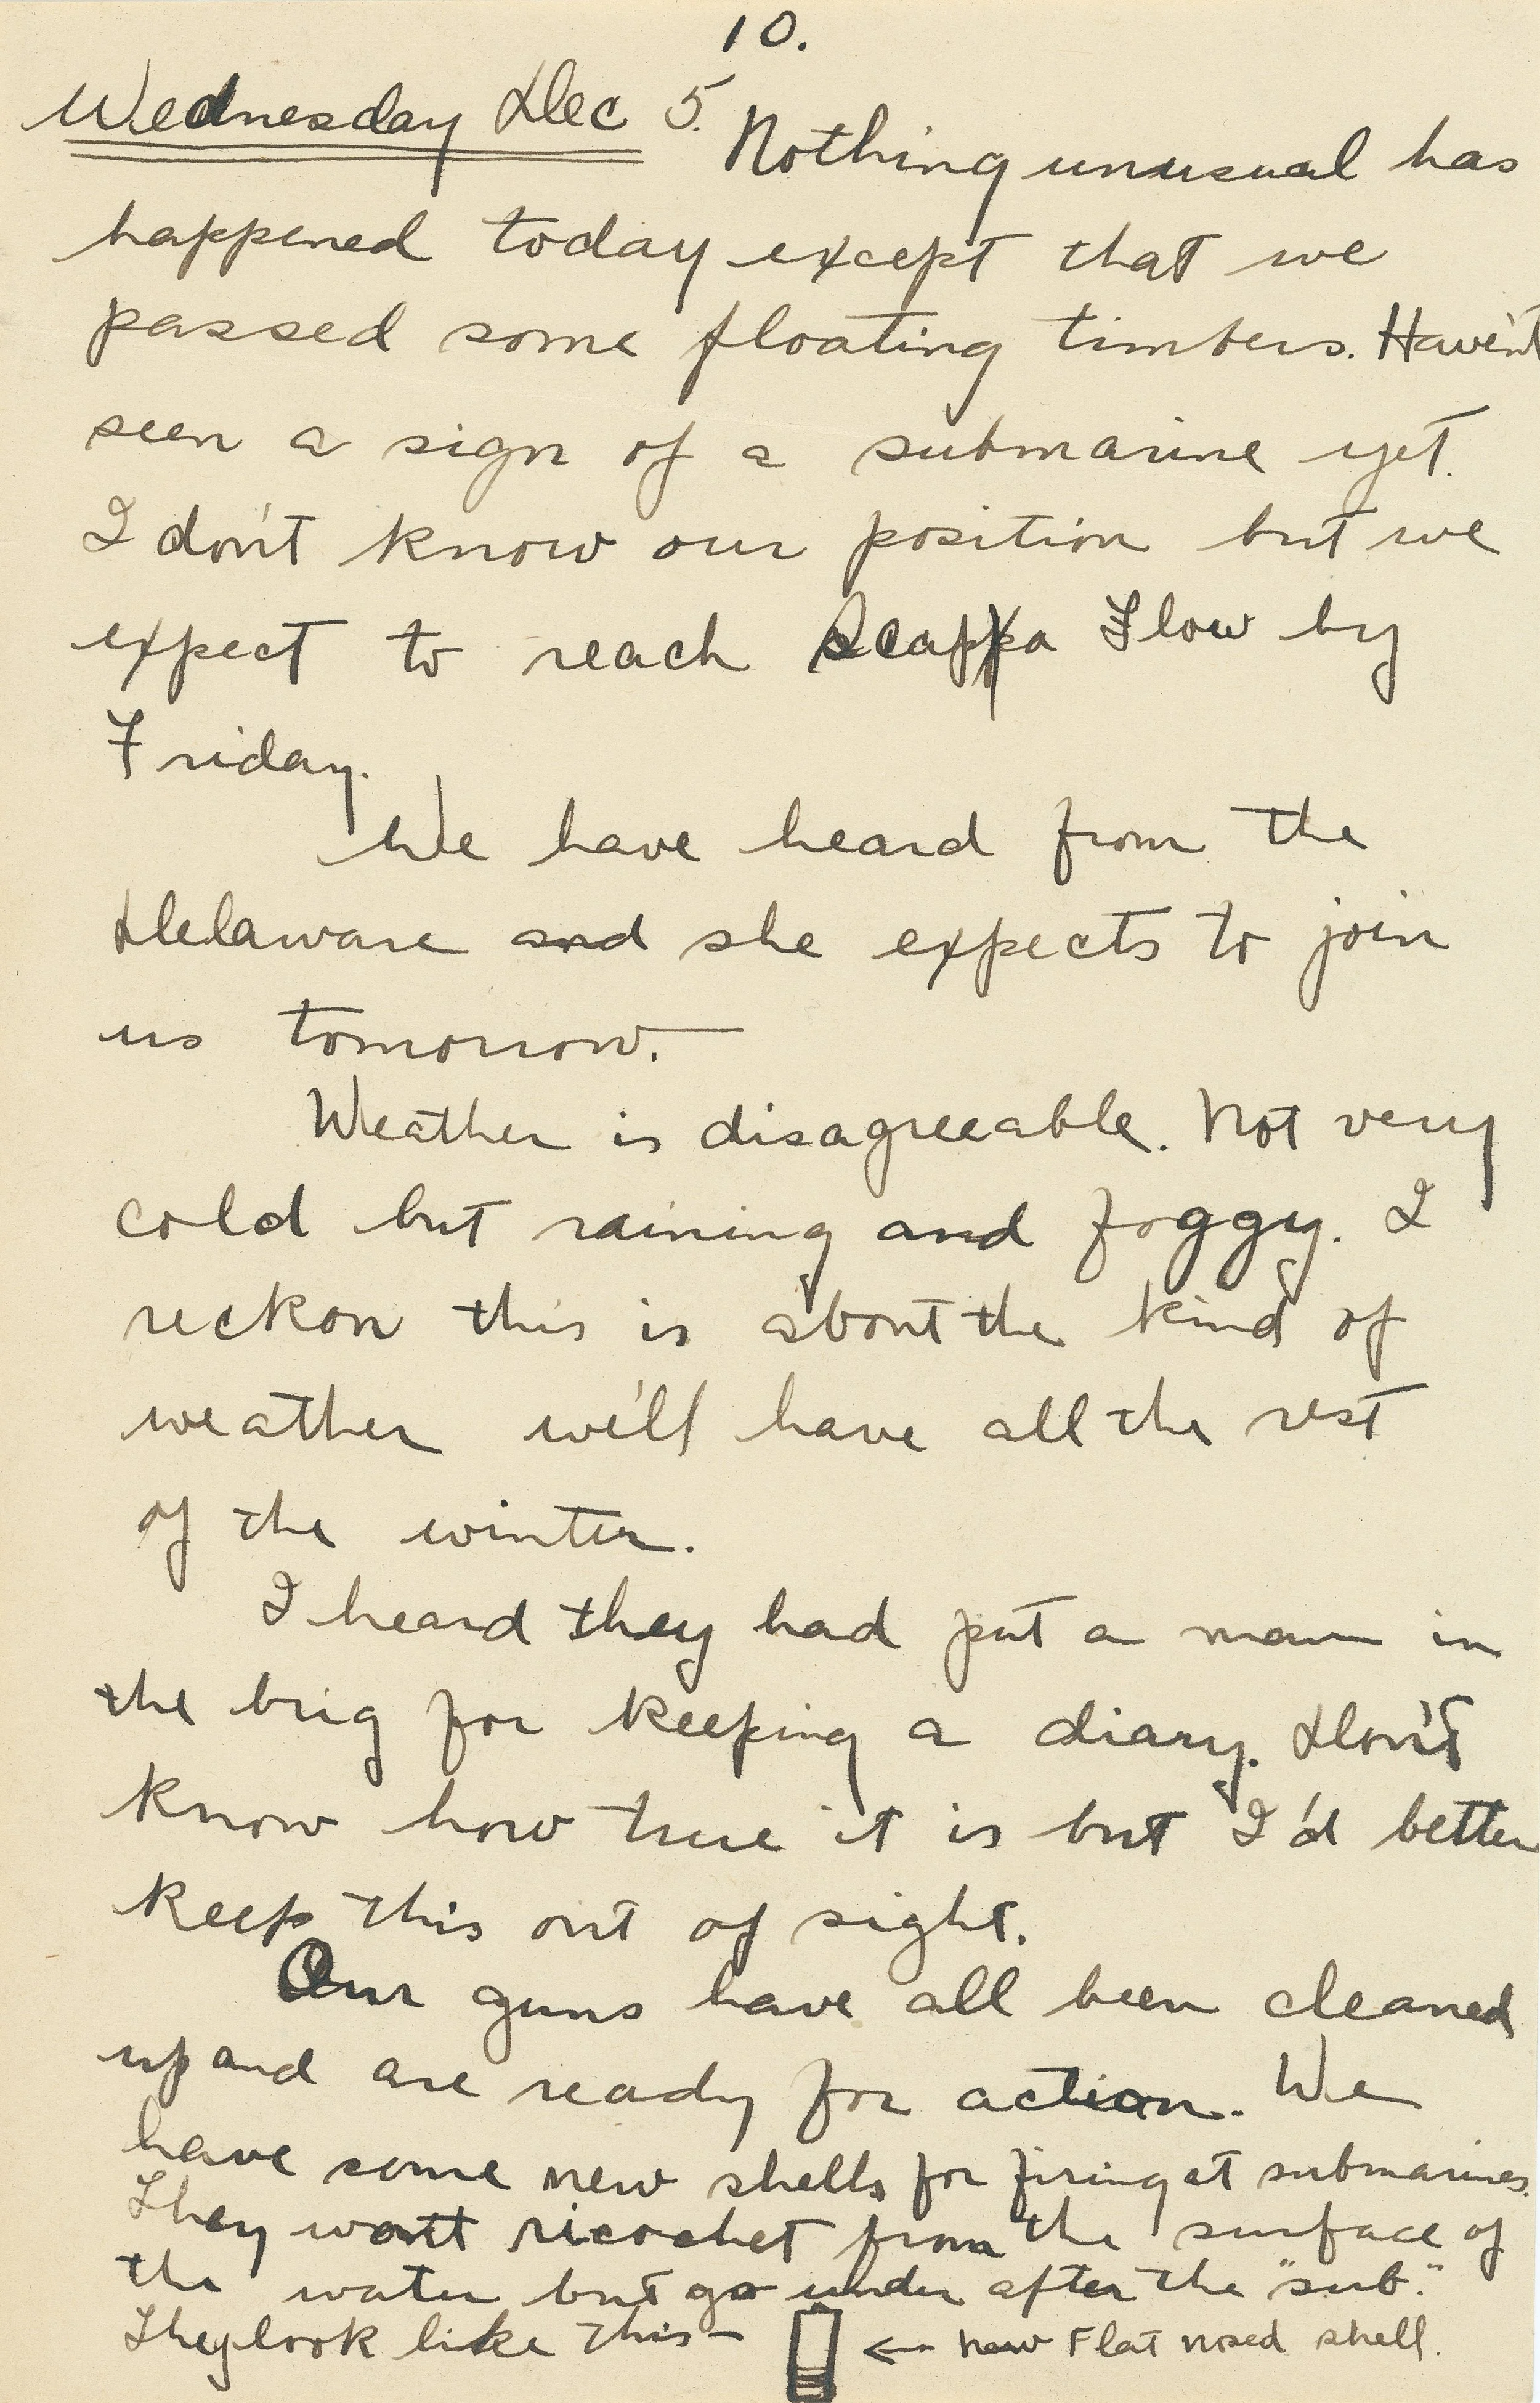 10.
Wednesday Dec 5. Nothing unusual has
happened today except that we
passed some floating timbers. Haven't
seen a sign of a submarine yet.
I don't know our position but we
expect to reach Scappa Flow by
Friday.
We have heard from the
Delaware and she expects to join
us tomorrow.
Weather is disagreeable. Not very
cold but raining and foggy. I
reckon this is about the kind of
weather we'll have all the rest
of the winter.
I heard they had put a man in
the brig for keeping a diary. Don't
know how true it is but I'd better
keep this out of sight.
Our guns have all been cleaned
up and are ready for action. We
have some new shells for firing at submarines.
They won't ricochet from the surface of
the water but go under after the "sub."
They look like this— ← new Flat nosed shell.